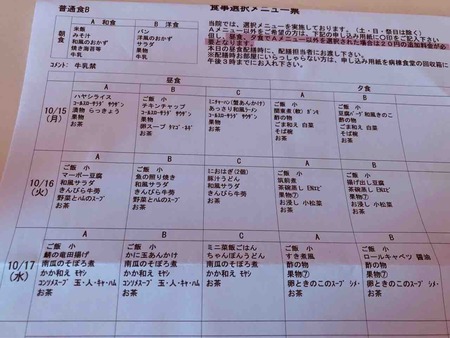 普通食B
食事選択メニュー票
朝食
A 和食
B 洋食
米飯
みそ汁
和風のおかず
焼き海苔等
牛乳
お茶
パン
洋風のおかず
サラダ
果物
牛乳
お茶
コメント: 牛乳禁
当院では、選択メニューを実施しております。（土・日・祭日は除く）
Aメニュー以外を選択される方は、下記の申し込み用紙に〇印をご記入下さい
但し、昼食、夕食でAメニュー以外を選択された場合は20円の追加料金が必要となります。
本日の昼食配膳時に、配膳担当者にお渡し下さい。
昼食
夕食
A
B
C
A
B
10/15
(月)
ハヤシライス
コールスローサラダ サウザン
漬物 らっきょう
果物
お茶
ご飯 小
チキンチャップ
コールスローサラダ サウザン
果物
卵スープ タマゴ・ネギ
お茶
ミニチャーハン(蟹あんかけ)
あっさり和風ラーメン
コールスローサラダ サウザン
果物
お茶
ご飯 小
関東煮(軟) ガンモ
酢の物
ごま和え 白菜
そば椀
お茶
ご飯 小
豆腐バーグ和風きのこ
酢の物
ごま和え 白菜
そば椀
お茶
A
B
C
A
B
10/16
(火)
ご飯 小
マーボー豆腐
和風サラダ
きんぴら牛蒡
野菜とハムのスープ
お茶
ご飯 小
魚の照り焼き
和風サラダ
きんぴら牛蒡
野菜とハムのスープ
お茶
ミニおはぎ(2個)
豚汁うどん
和風サラダ
きんぴら牛蒡
お茶
ご飯 小
筑前煮
茶碗蒸し ENエビ
果物
お浸し 小松菜
お茶
ご飯 小
揚げ出し豆腐
茶碗蒸し ENエビ
果物
お浸し 小松菜
お茶
A
B
C
A
B
10/17
(水)
ご飯 小
鯖の竜田揚げ
南瓜のそぼろ煮
かか和え モヤシ
コンソメスープ 玉・人・キャ・ハム
お茶
ご飯 小
かに玉あんかけ
南瓜のそぼろ煮
かか和え モヤシ
コンソメスープ 玉・人・キャ・ハム
お茶
ミニ菜飯ごはん
ちゃんぽんうどん
南瓜のそぼろ煮
かか和え モヤシ
お茶
ご飯 小
すき煮風
酢の物
果物⑦
卵ときのこのスープ シメ・
お茶
ご飯 小
ロールキャベツ 醤油
酢の物
果物⑦
卵ときのこのスープ シメ・
お茶